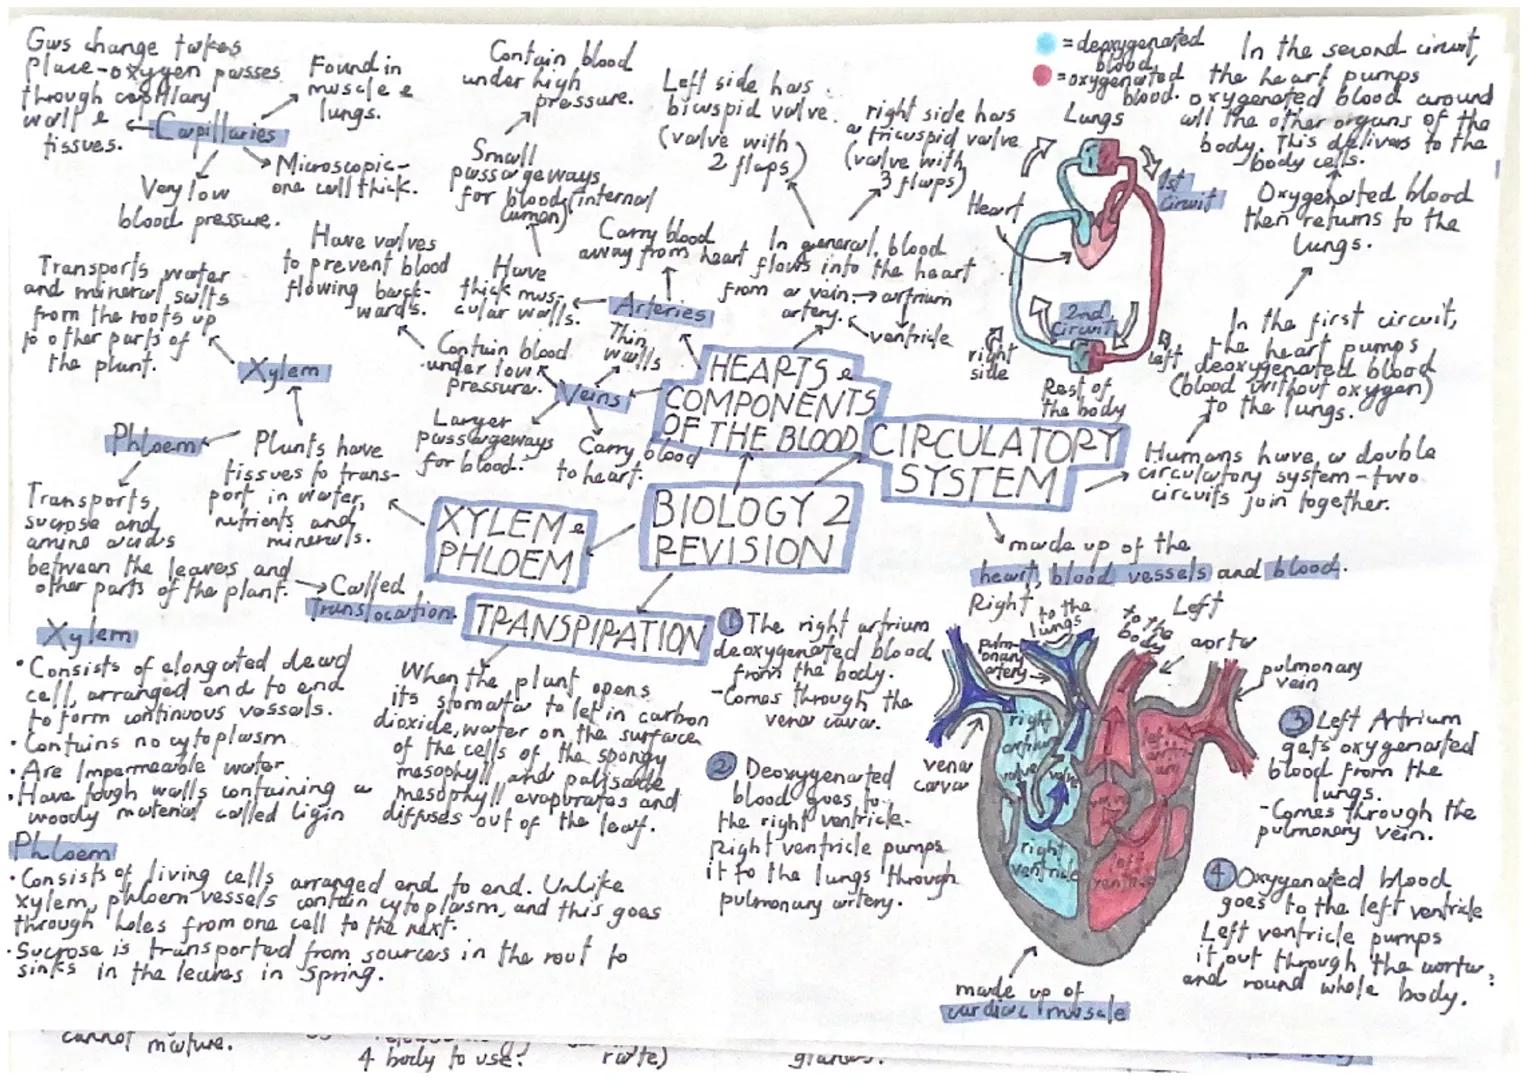 Gas change takes
place-oxygen passes
through capillary
wall &
tissues.
Capillaries
Found in
muscle &
lungs.
Microscopic-
one cell thick.
Very low
blood pressure.
Contain blood
under high
pressure.
Small
passageways
for blood (internal
lumen)
Have
thick mus-
cular walls.
Arteries
Carry blood
away from heart
Left side has
bicuspid valve.
(valve with
2 flaps)
right side has
a tricuspid valve
(valve with
3 flaps)
In general, blood
flows into the heart
from a vein → artrium
artery. ventricle
Have valves
to prevent blood
flowing back-
wards.
Contain blood
under low
pressure.
Thin
walls
Veins
Larger
passageways
for blood.
Carry blood
to heart.
HEARTS &
COMPONENTS
OF THE BLOOD
= deoxygenated
blood
= oxygenated
blood.
Lungs
1st
circuit
Heart
2nd
circuit
right
side
left
Rest of
the body
In the second circuit,
the heart pumps
oxygenated blood around
all the other organs of the
body. This delivers to the
body cells.
Oxygenated blood
then returns to the
lungs.
In the first circuit,
the heart pumps
deoxygenated blood
(blood without oxygen)
to the lungs.
Humans have a double
circulatory system-two
circuits join together.
CIRCULATORY
SYSTEM
made up of the
heart, blood vessels and blood.
BIOLOGY 2
REVISION
Transports water
and mineral salts
from the roots up
to other parts of
the plant.
Xylem
Phloem
Plants have
tissues to trans-
port in water,
nutrients and
minerals.
XYLEM &
PHLOEM
Transports
sucrose and
amino acids
between the leaves and
other parts of the plant.
Called
Translocation.
TRANSPIRATION
When the plant opens
its stomata to let in carbon
dioxide, water on the surface
of the cells of the spongy
mesophyll and palisade
mesophyll evaporates and
diffuses out of the leaf.
Xylem
• Consists of elongated dead
cell, arranged end to end
to form continuous vessels.
• Contains no cytoplasm
• Are Impermeable water
• Have tough walls containing a
woody material called ligin
Phloem
• Consists of living cells arranged end to end. Unlike
xylem, phloem vessels contain cytoplasm, and this goes
through holes from one cell to the next.
• Sucrose is transported from sources in the root to
sinks in the leaves in spring.
1 The right artrium
deoxygenated blood
from the body.
-Comes through the
vena cava.
2 Deoxygenated
blood goes to
the right ventricle.
Right ventricle pumps
it to the lungs through
pulmonary artery.
Right
to the
lungs
pulm-
onary
artery
to the
body
Left
aorta
pulmonary
vein
vena
cava
right
artrium
valve
valve
left
right
ventricle
left
ventricle
made up of
cardiac muscle
3 Left Artrium
gets oxygenated
blood from the
lungs.
-Comes through the
pulmonary vein.
4 Oxygenated blood
goes to the left ventricle
Left ventricle pumps
it out through the aorta,
and round whole body.
cannot mature.
4 body to use?